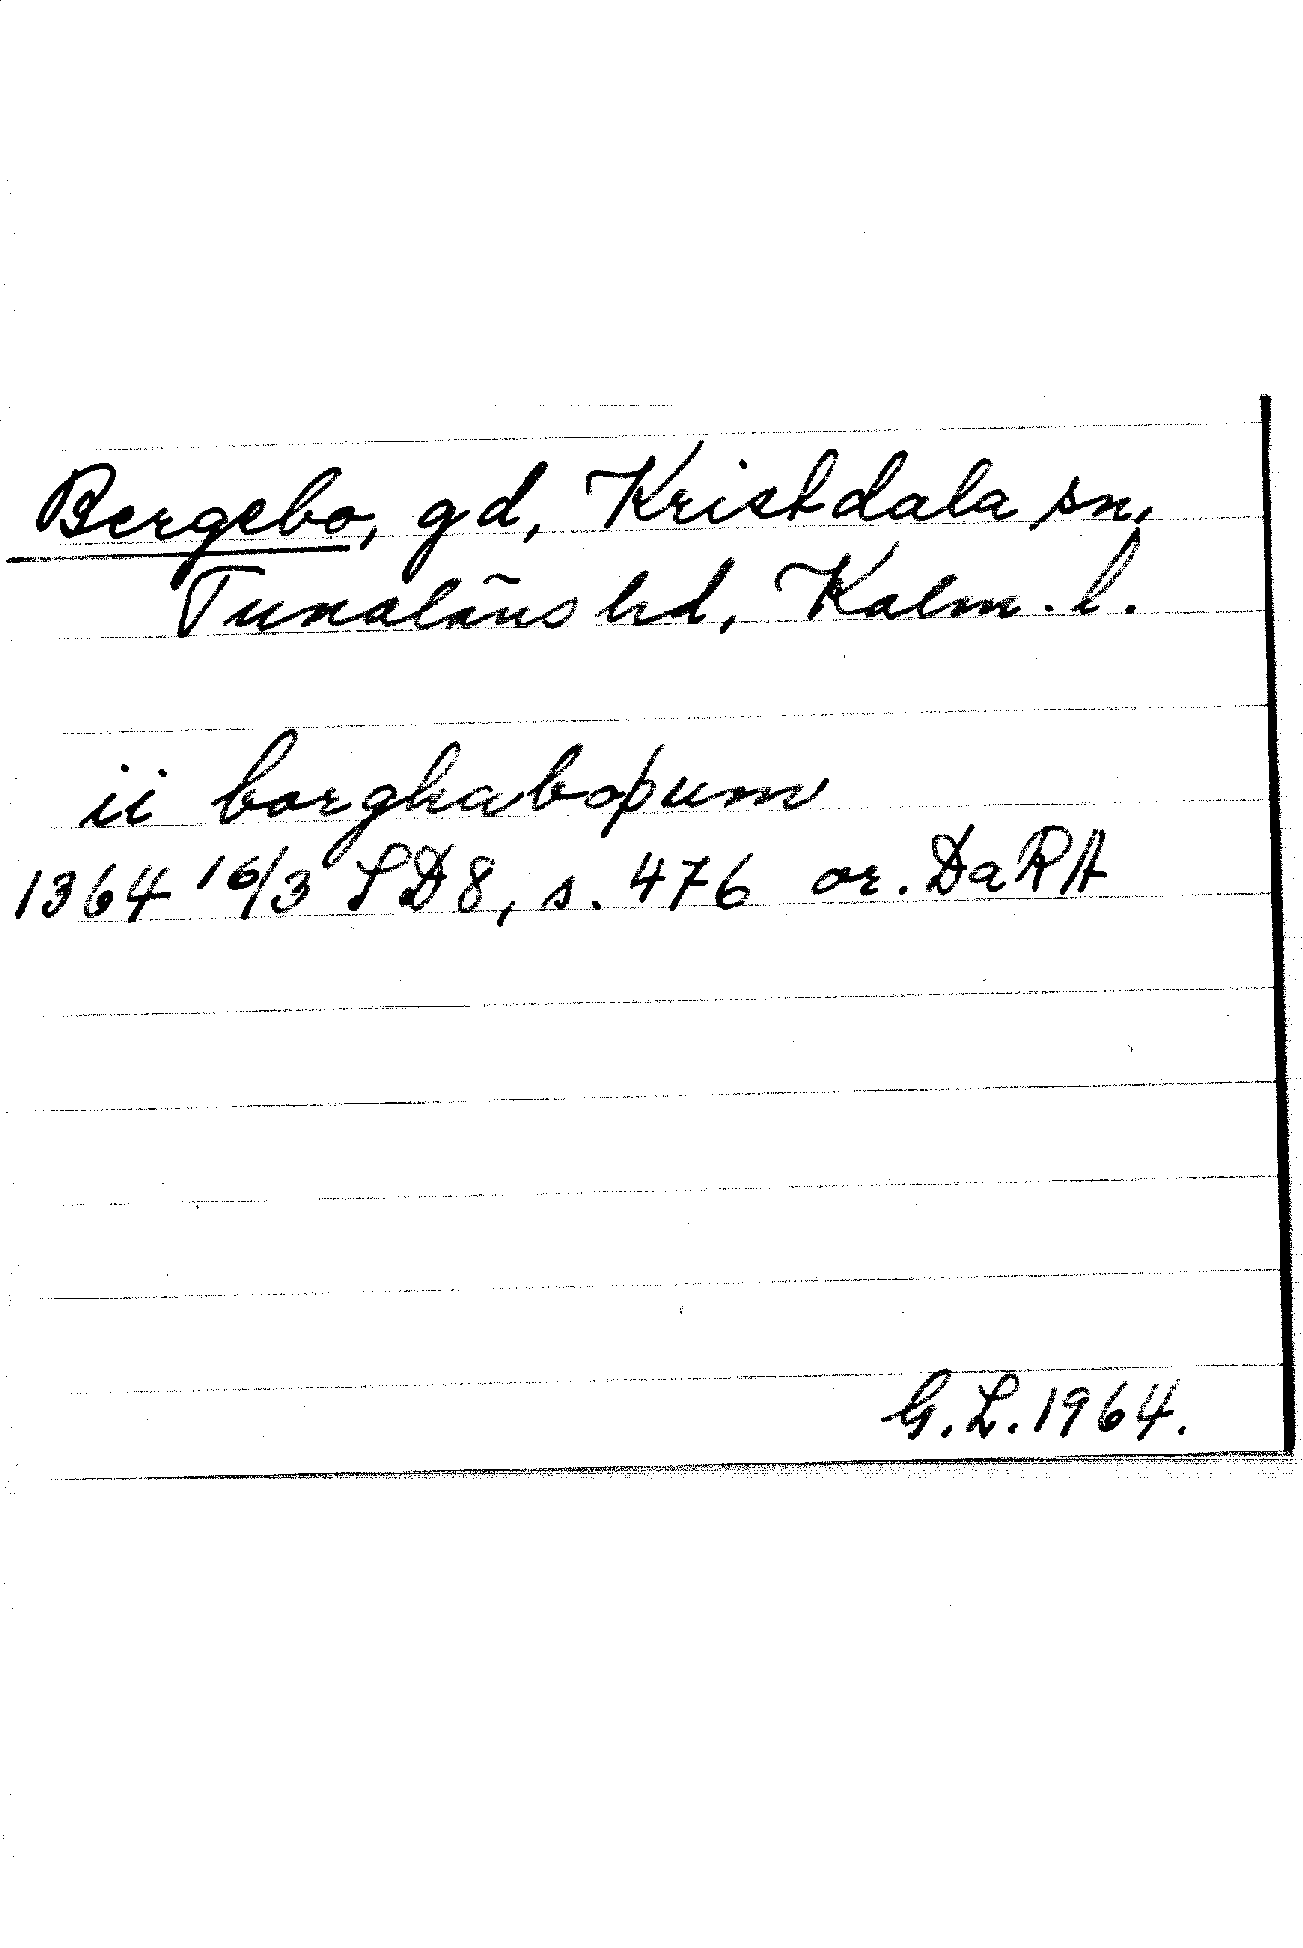 Bergebo, gd, Kristdala sn,
Tunaläns hd, Kalm. l.
ii borghaboþum
1364 16/3 SD8, s. 476 or. DaRA
G. L. 1964.